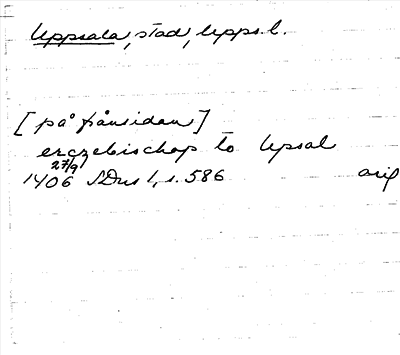 Uppsala, stad, Upps. l.
[på frånsidan]
erczebischop to Upsal
27/9
1406 SDns 1, s. 586 orig